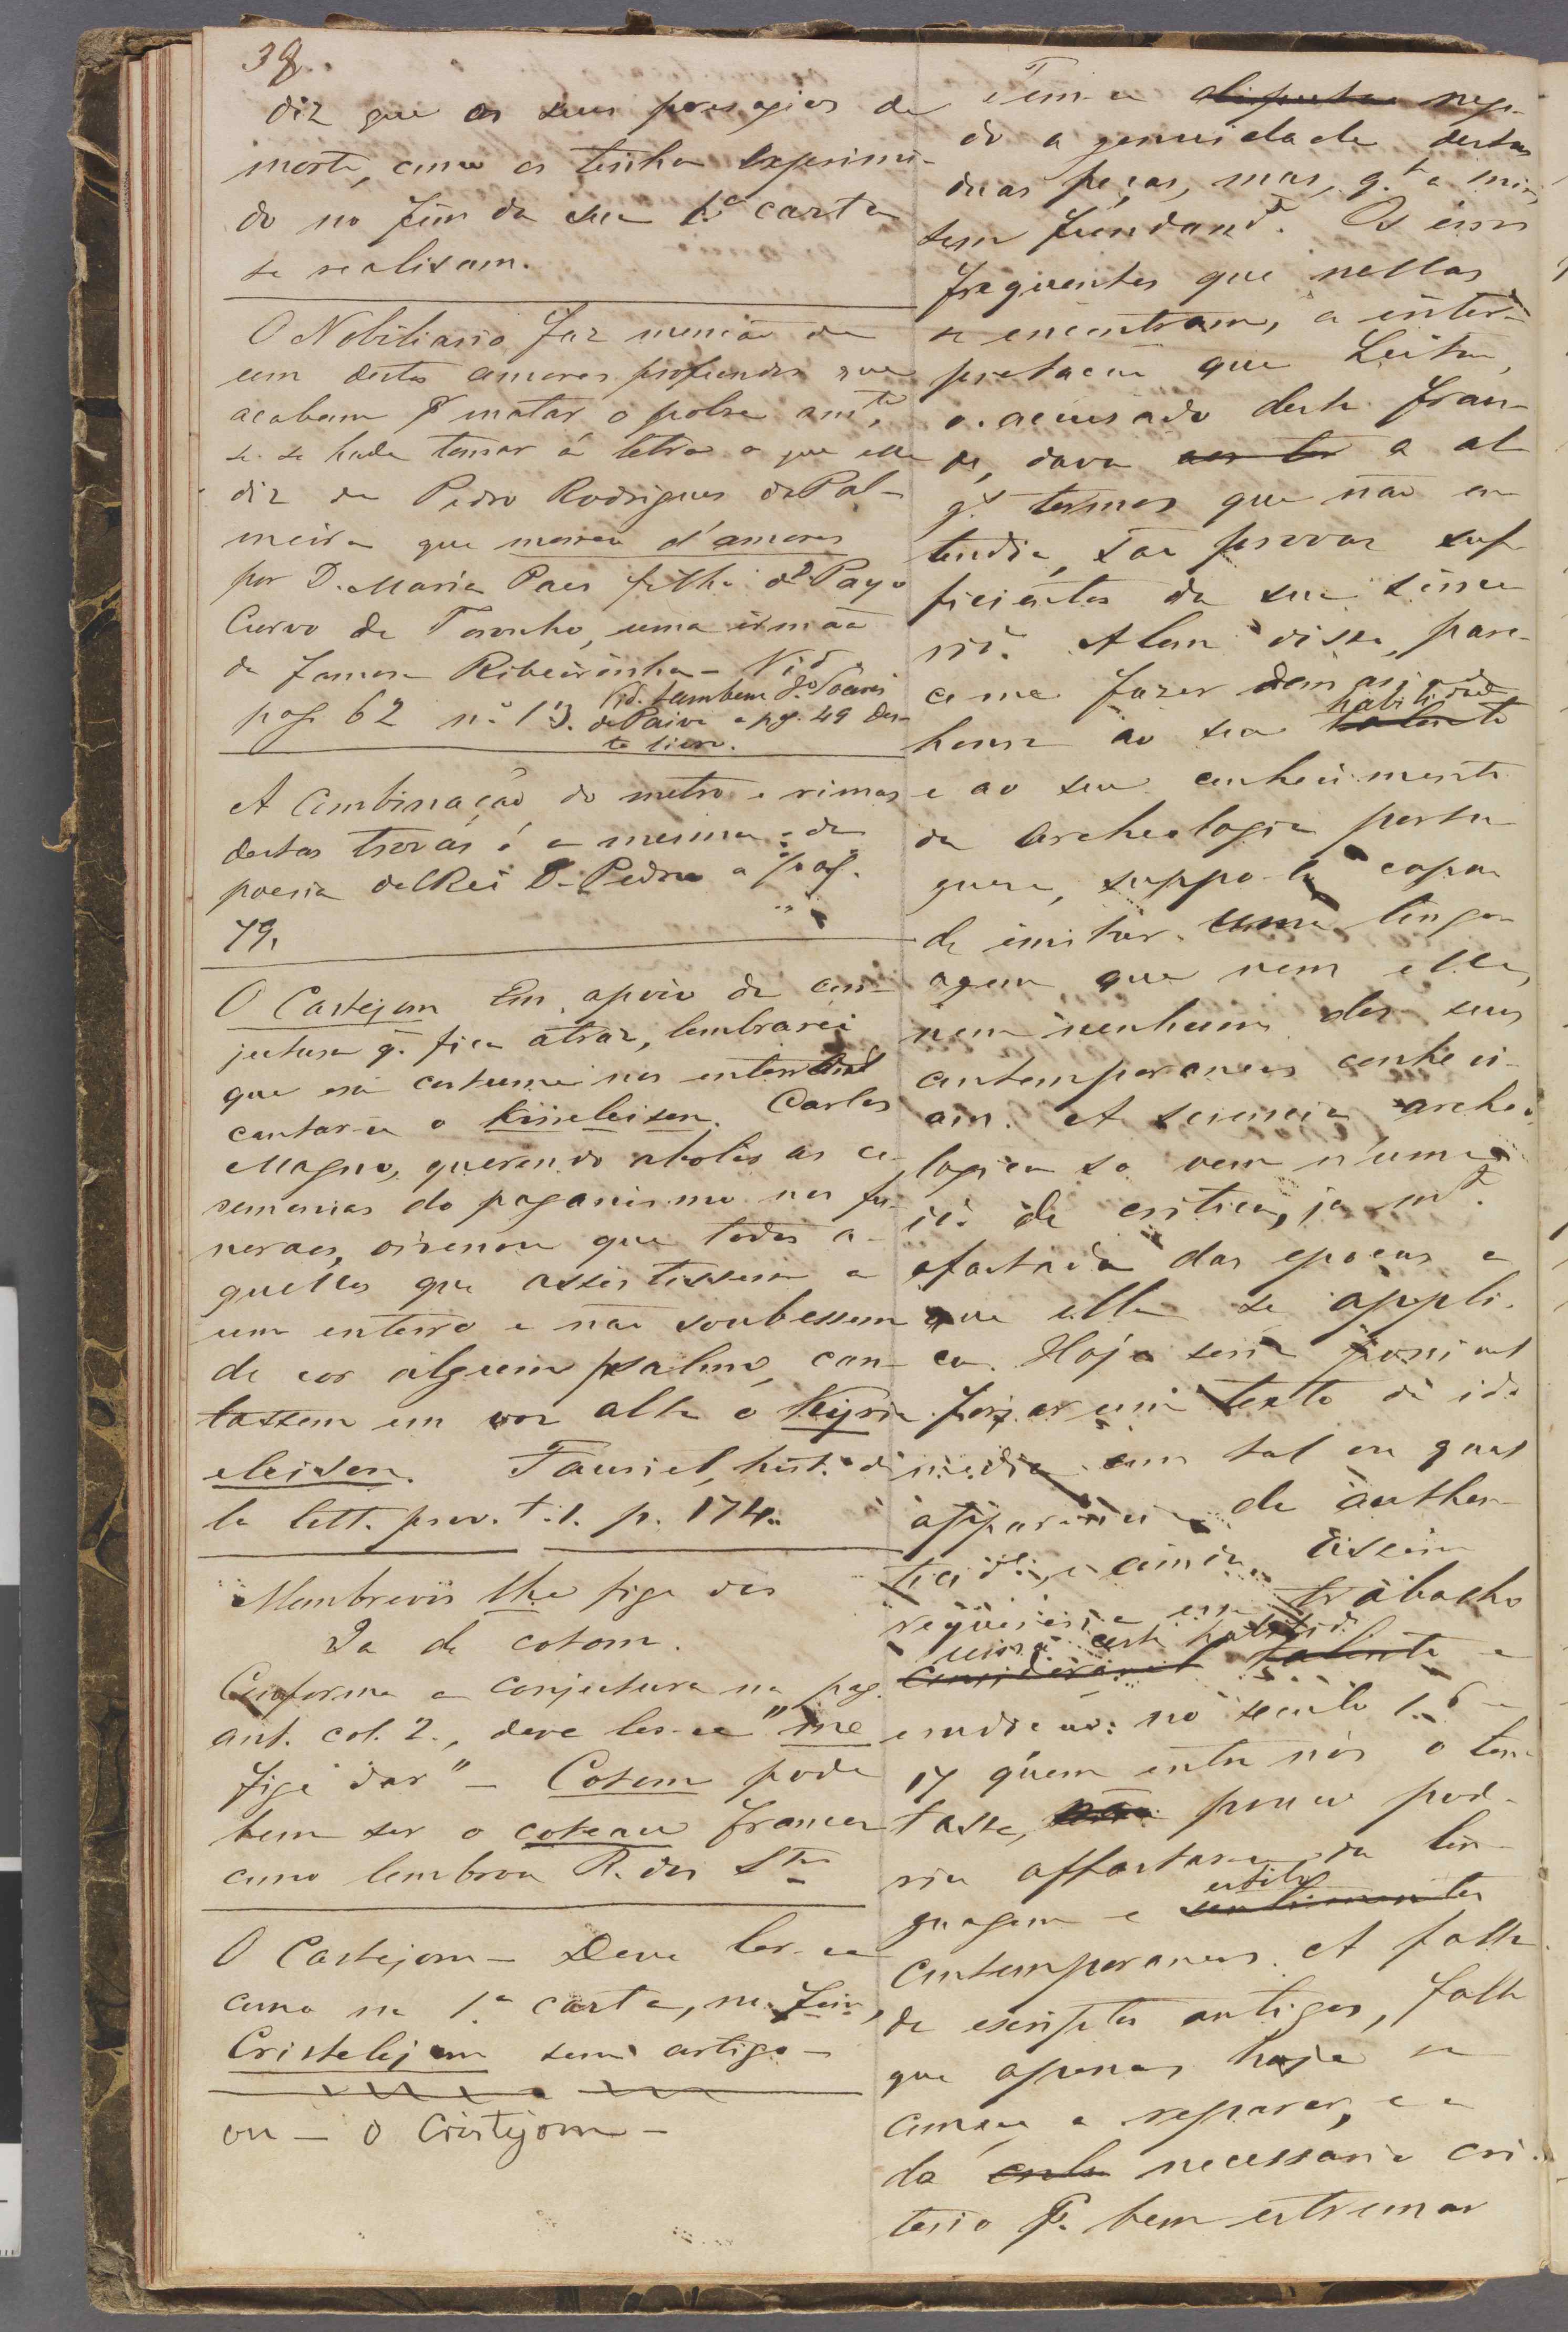 38.
diz que os seus presagios de
morte, como os tinha exprimi-
do no fim da sua 1.ª carta
se realisam.
O Nobiliario faz menção de
um destes amores profundos que
acabam pr matar o pobre amte,
se se hade tomar á letra o que elle
diz de Pedro Rodrigues de Pal-
meira que morreu d'amores
por D. Maria Paes filha de Payo
Curvo de Toronho, uma irmãa
da famosa Ribeirinha - Vid.
pag. 62 nº 13. Vid. tambem J.º Soares
de Paiva a pg. 49 des-
te livro.
A Combinação do metro e rimas
destas trovas é a mesma da
poesia delRei D. Pedro a pag.
79.
O Castejom Em apoio da con-
jectura q. fica atraz, lembrarei
que era costume nos enterros
cantar-se o Kirieleison. Carlos
Magno, querendo abolir as ce-
remonias do paganismo nos fu-
neraes, ordenou que todos a-
quelles que assistissem a
um enterro e não soubessem
de cor algum psalmo, can-
tassem em voz alta o Kyrie
eleison. Fauriel, hist. de
la litt. prov. t. 1. p. 174.
Membrevos the fige des
Da de cotom.
Conforme a conjectura na pag.
ant. col. 2., deve ler-se "me
fige dar" - Cotom pode
bem ser o coteau francez
como lembrou R. dos Stos
O Castejom - Deve ler-se
como na 1.ª carta, no fim,
Cristelejom sem artigo -
ou - O Cristejom -
Tem-se disputar nega-
do a genuidade destas
duas peças, mas, q.to a mim,
sem fundamt.º. Os erros
frequentes que nellas
se encontram, a inter-
pretação que Leitão,
o accusado desta frau-
de, dava aos ter a al-
gs. termos que não en-
tendia, são provas suf-
ficientes da sua since-
rid.e Alem disso, pare-
ce-me fazer demasiada
honra ao seu talento habilidade
e ao seu conhecimento
da archeologia portu-
gueza, suppo-lo capaz
de imitar uma lingoa-
gem que nem elle,
nem nenhum dos seus
contemporaneos conheci-
am. A sciencia archeo-
logica so vem n'uma
id.e de critica, ja mt.º
afastada das epocas a
que ella se appli-
ca. Hoje seria possivel
forjar um texto da ide
media com tal ou qual
apparencia de authen-
ticid.e, e ainda assim
requereria esse trabalho
uma certa habilid.e
consideravel talento e
erudição: no seculo 16 e
17 quem entre nós o ten-
tasse, não pouco pode-
ria affastar-se da lin-
guagem e estilo sentimentos
contemporaneos. A falta
de escriptos antigos, falta
que apenas hoje se
começa a reparar, e a
da necessaria cri-
terio pª bem extremar